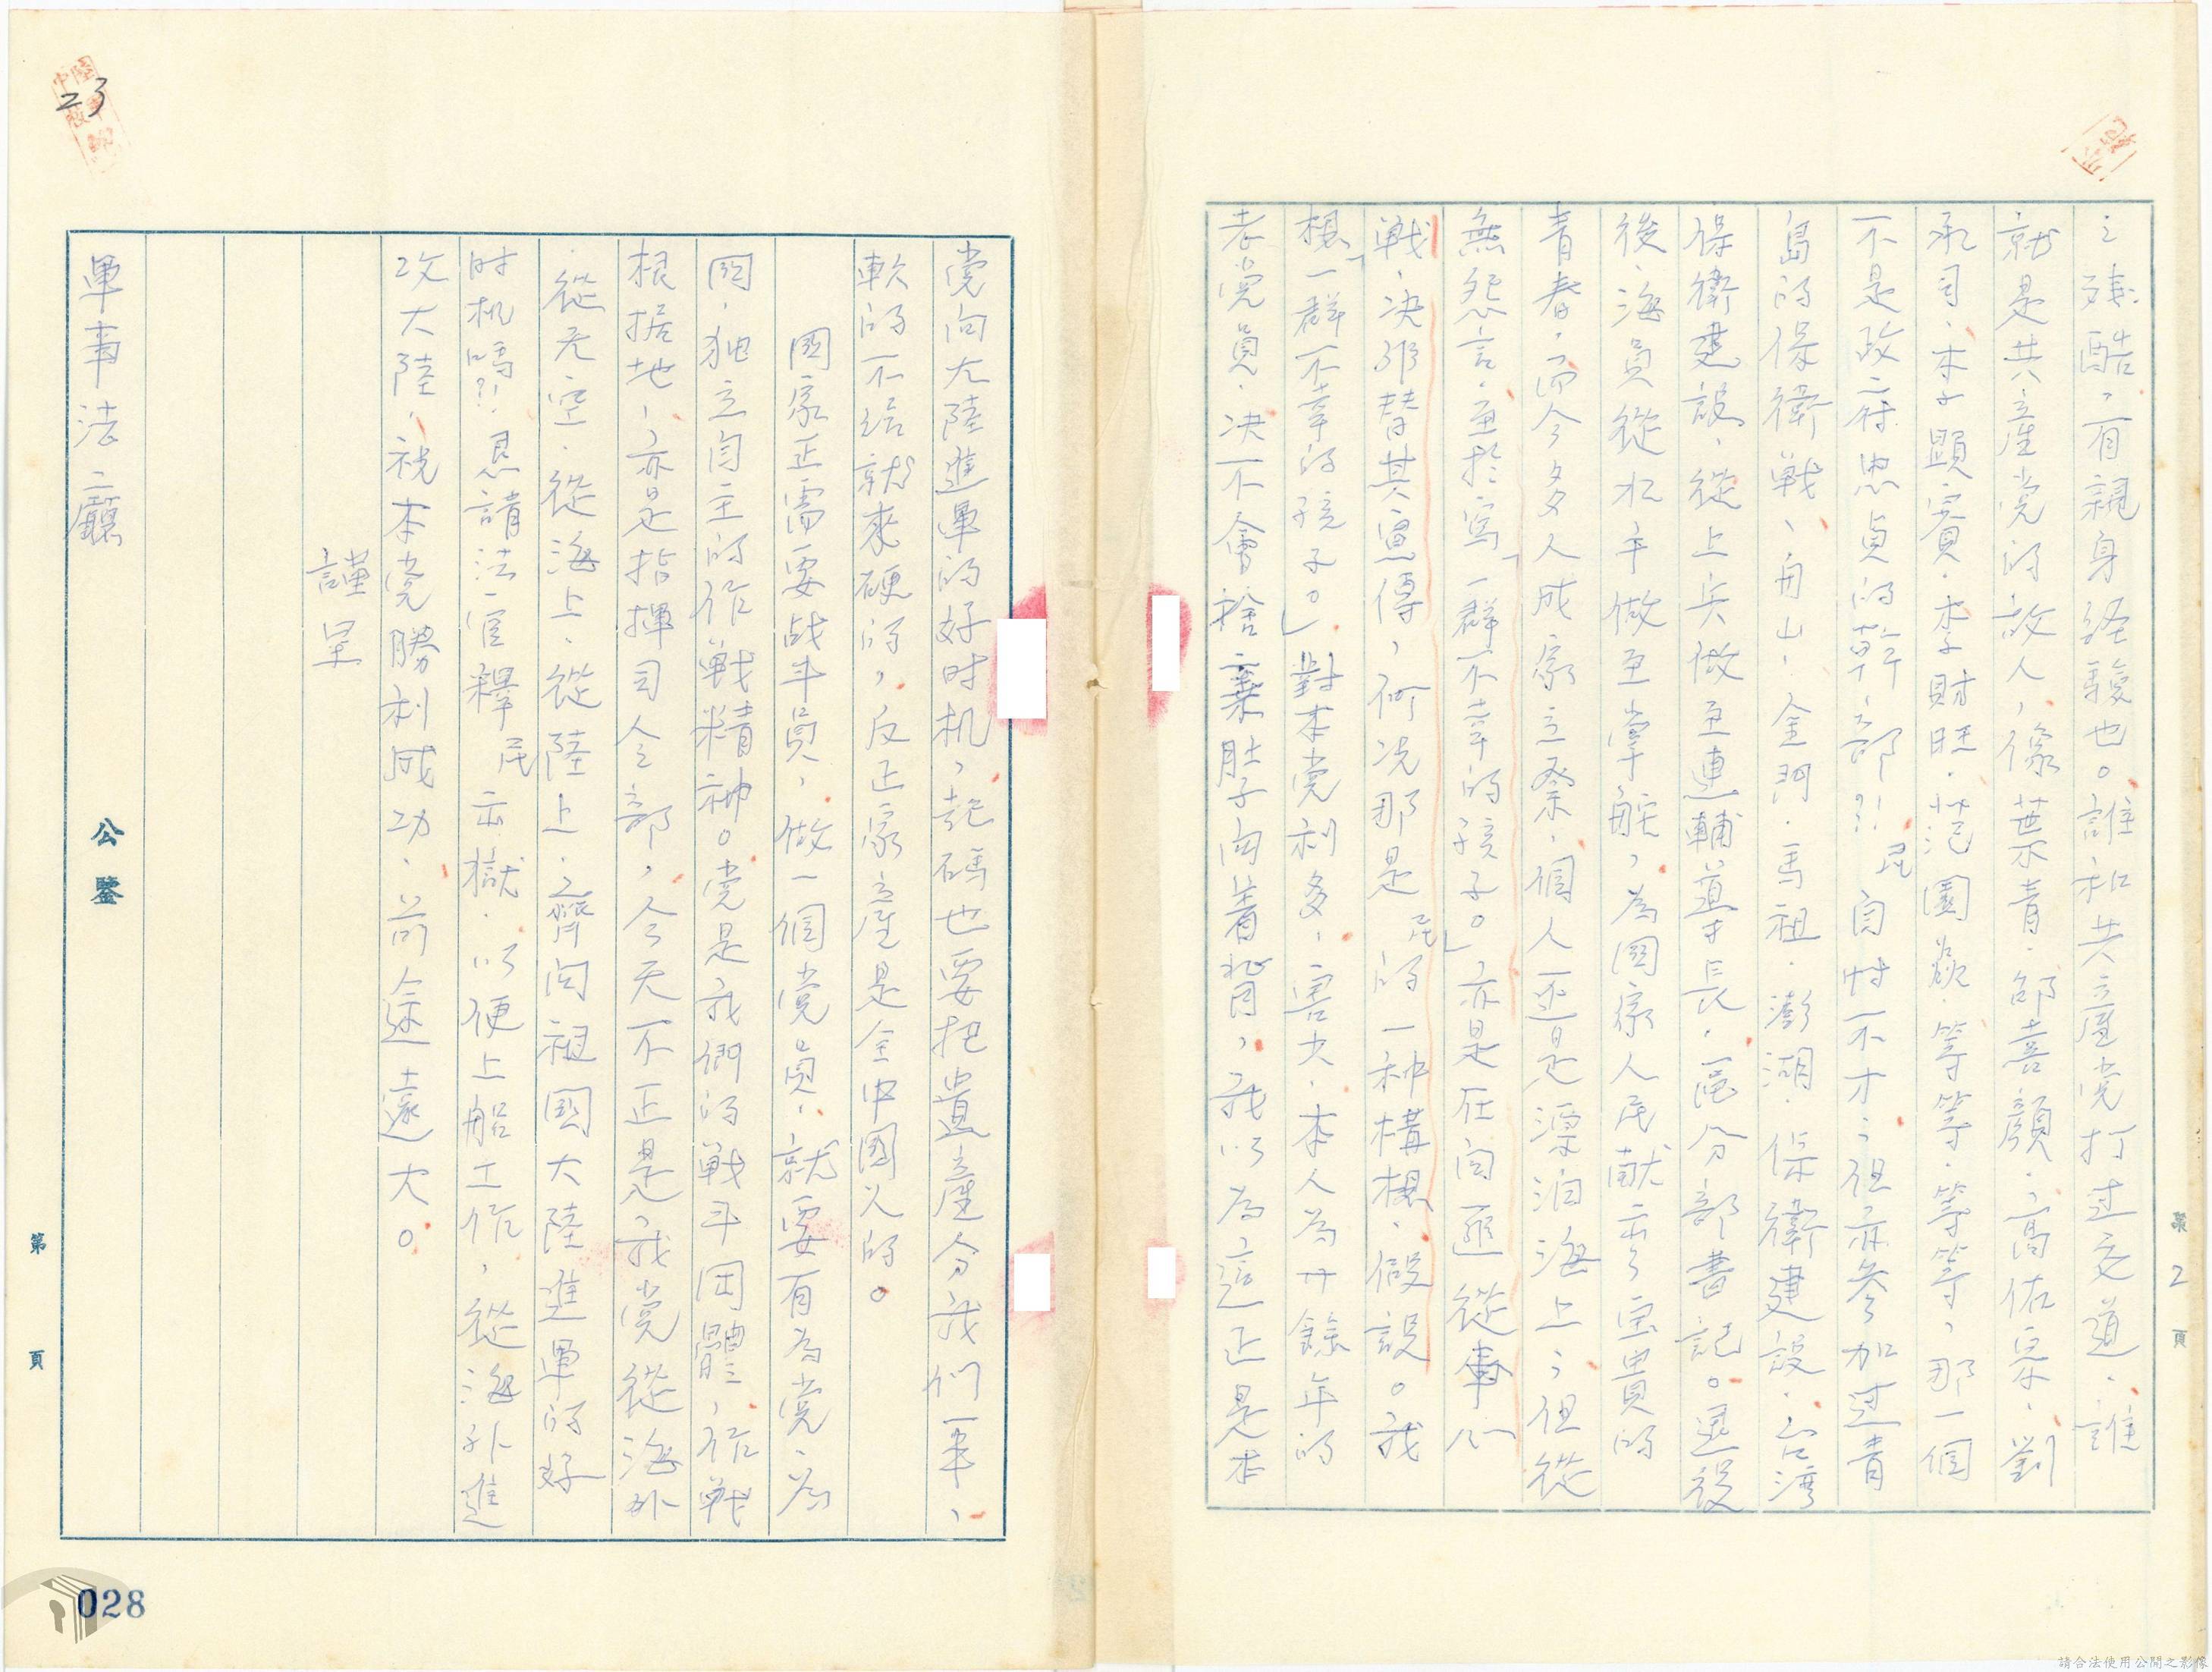 第2頁
之殘酷,有親身経驗也。誰和共產党打过交道、誰
就是共產党的敌人,像葉青、邰喜顏、高佑宗、劉
承司、李顯賓、李財旺、范園焱、等等等、等等,那一個
不是政府忠貞的幹部?!民自忖不才;但亦参加过青
島的保衛戰、舟山、金門、馬祖、澎湖、保衛建設、台湾
保衛建設、從上兵做至連輔導長、區分部書記。退役
後、海員從水手做至掌舵,為國家人民献出了宝貴的
青春、而今多人成家立業、個人还是漂泊海上;但從
無怨言、至於寫「一群不幸的孩子。」亦是在向匪從事心
戰、决非替其宣傳,何况那是民的一种構想、假設。我
想「一群不幸的孩子。」對本党利多、害少、本人為廿餘年的
老党員、决不會捨棄肚子向着背,我以為這正是本
党向大陸進軍的好时机,起碼也要把遺產分我们一半、
軟的不给就來硬的,反正家產是全中國人的。
國家正需要战斗員,做一個党員、就要有為党、為
國、独立自主的作戰精神。党是我們的戰斗团體,作戰
根据地,亦是指揮司令部,今天不正是我党從海外
、從天空、從海上、從陸上、齊向祖國大陸進軍的好
时机嗎?!恳請法官釋民出獄、以便上船工作,從海外進
攻大陸、祝本党勝利成功、前途遠大。
謹呈
軍事法廳 公鑒
第 頁
23
028
請合法使用公開之影像